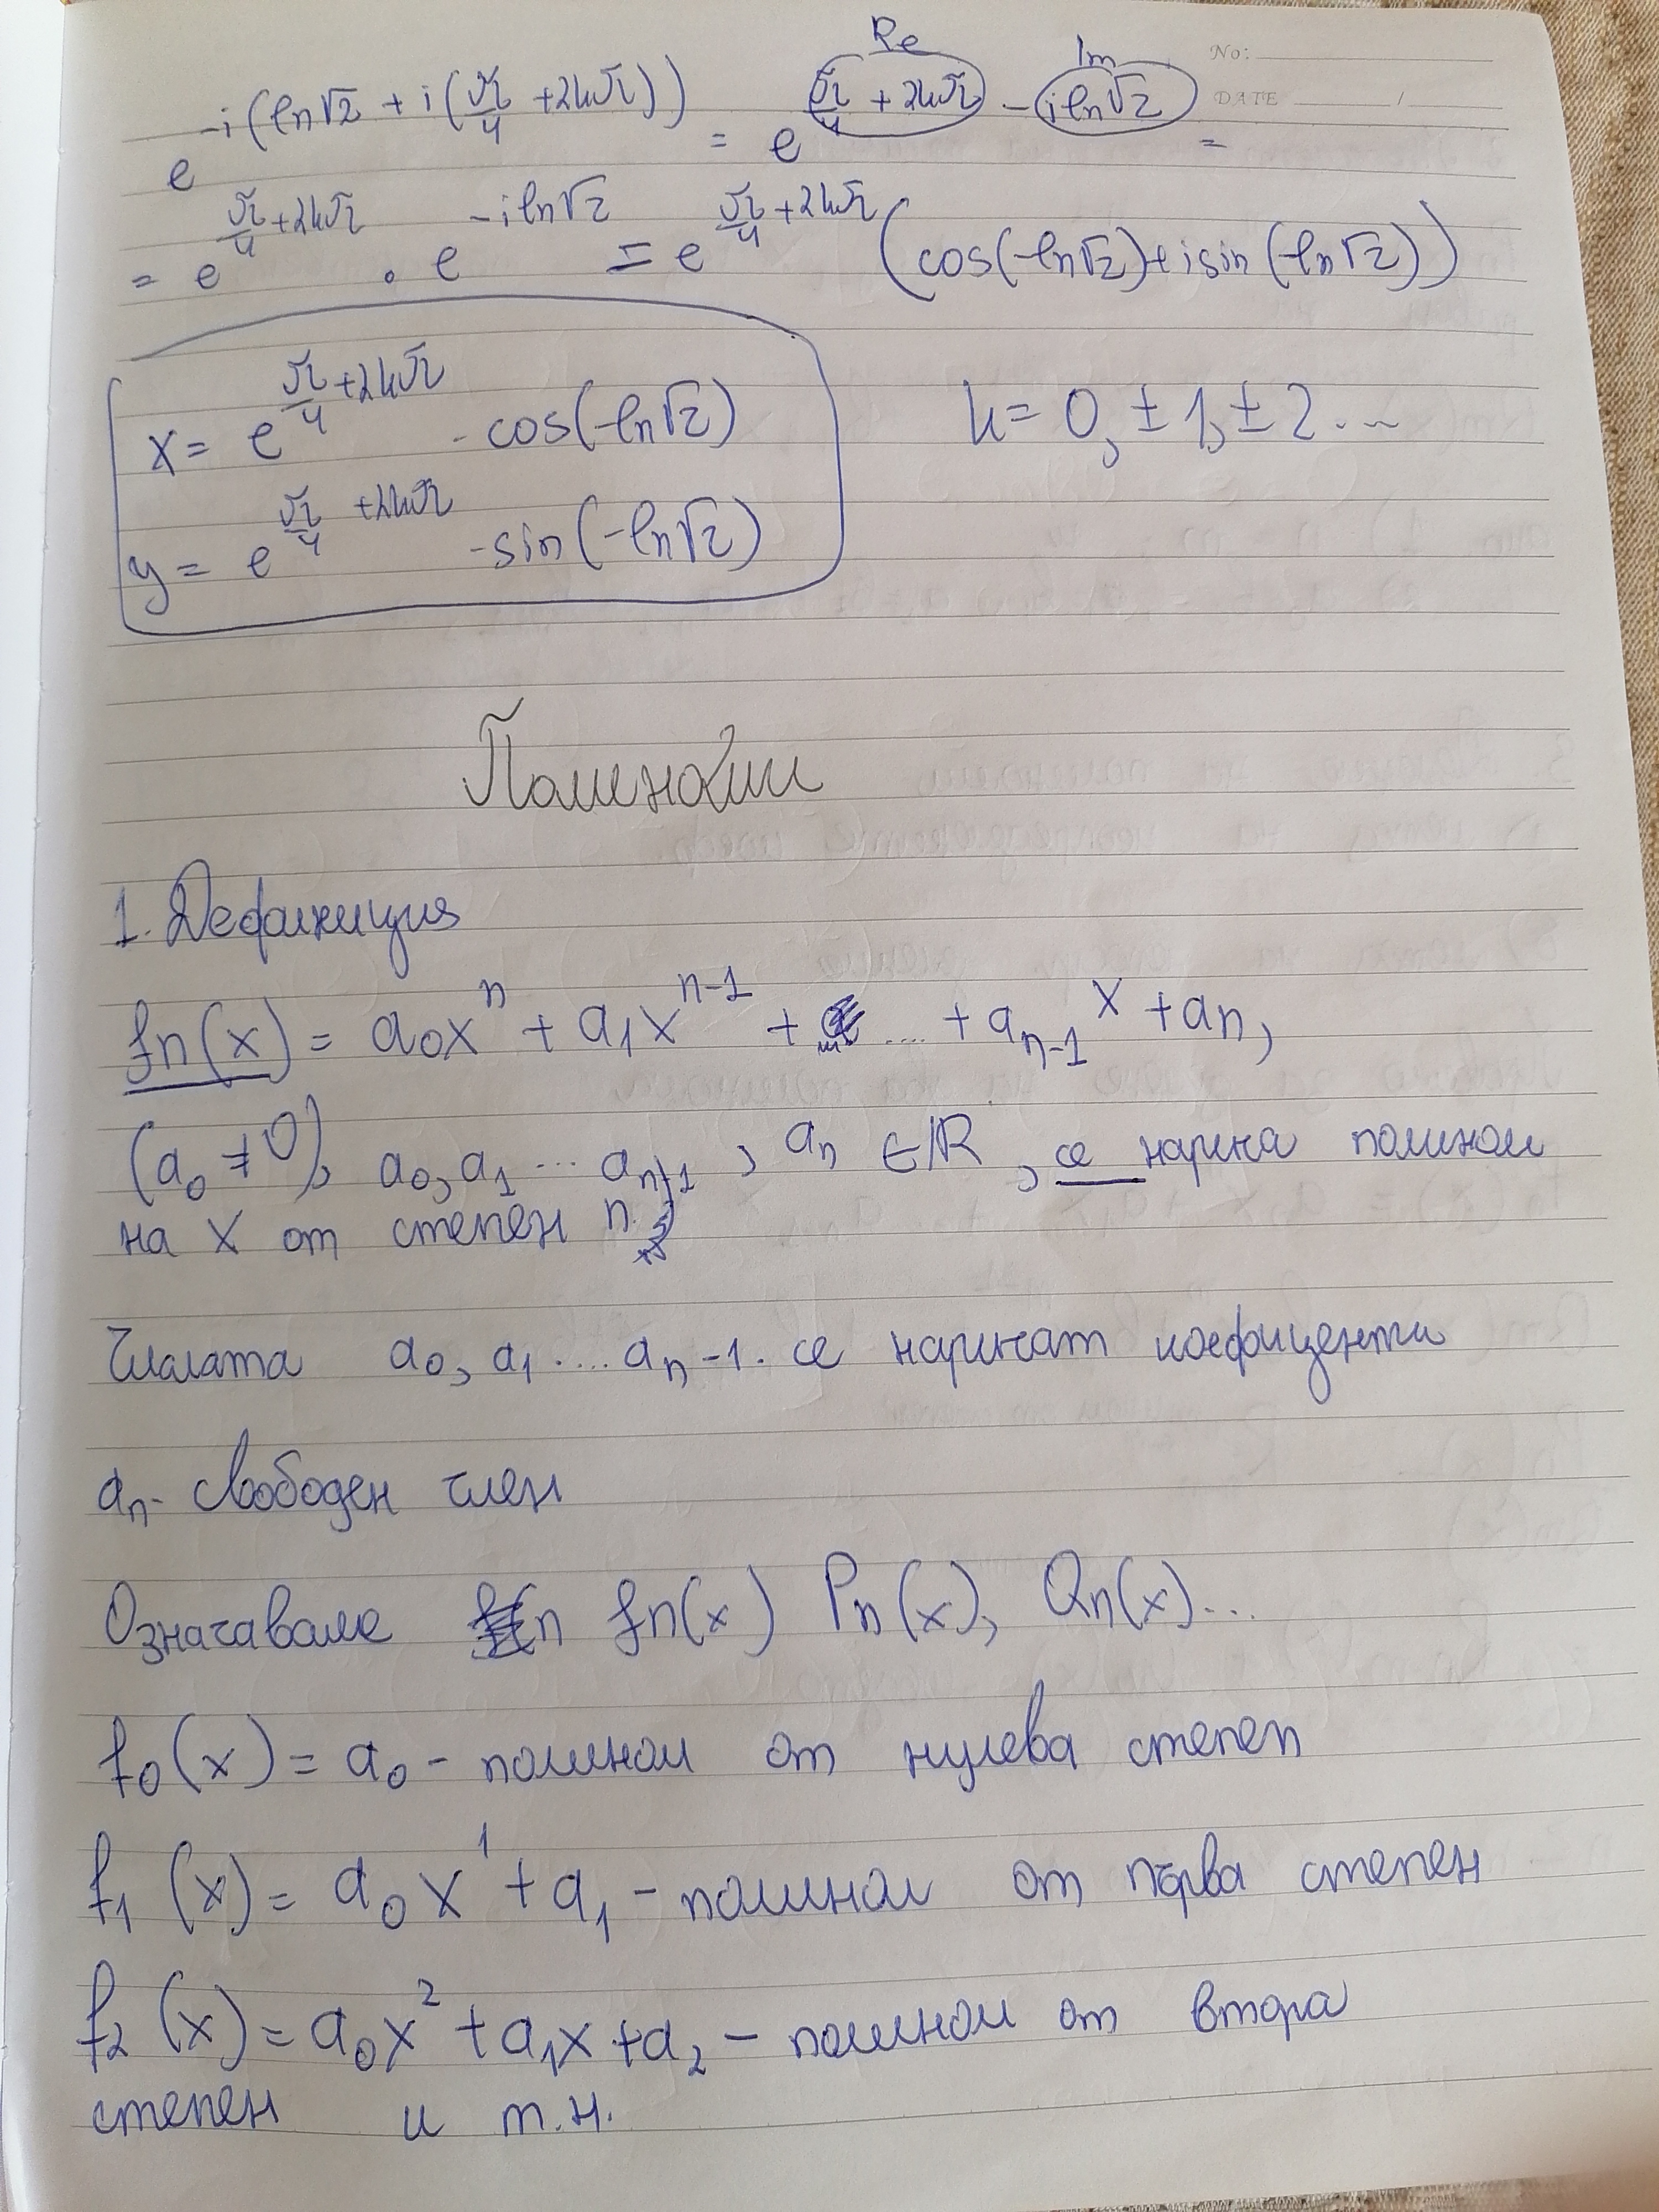 Re Im No:
DATE /
e^{-i(ln√2 + i(π/4 + 2kπ))} = e^{π/4 + 2kπ - iln√2} =
= e^{π/4 + 2kπ} . e^{-iln√2} = e^{π/4 + 2kπ} (cos(-ln√2)+isin(-ln√2))
x = e^{π/4 + 2kπ} . cos(-ln√2) k = 0, ±1, ±2...
y = e^{π/4 + 2kπ} . sin(-ln√2)
Полиноми
1. Дефиниция
fn(x) = a₀xⁿ + a₁xⁿ⁻¹ + .... + aₙ₋₁x + an,
(a₀ ≠ 0), a₀, a₁ ... aₙ₋₁, an ∈ ℝ, се нарича полином
на x от степен n.
Числата a₀, a₁ .... an-1. се наричат коефиценти
an - свободен член
Означаваме fn(x) Pn(x), Qn(x)...
f₀(x) = a₀ - полином от нулева степен
f₁(x) = a₀x¹ + a₁ - полином от първа степен
f₂(x) = a₀x² + a₁x + a₂ - полином от втора
степен и т.н.